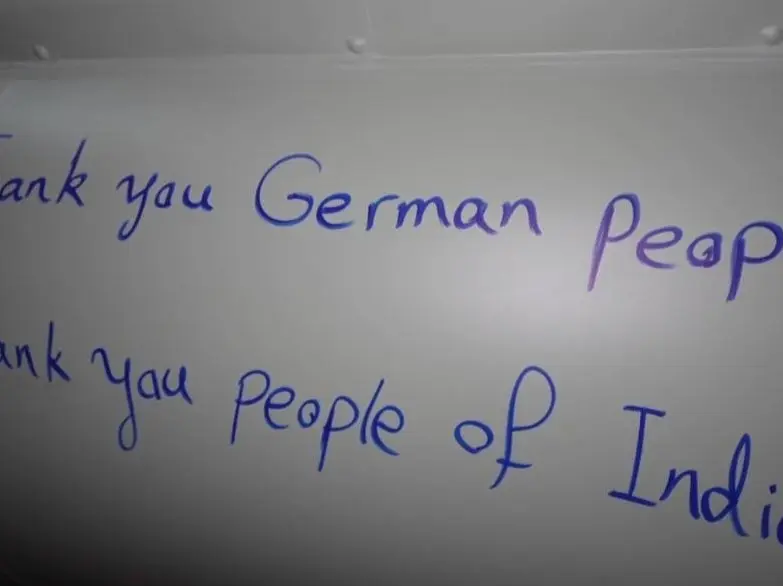 Tank you German Peop
ank you people of Indi